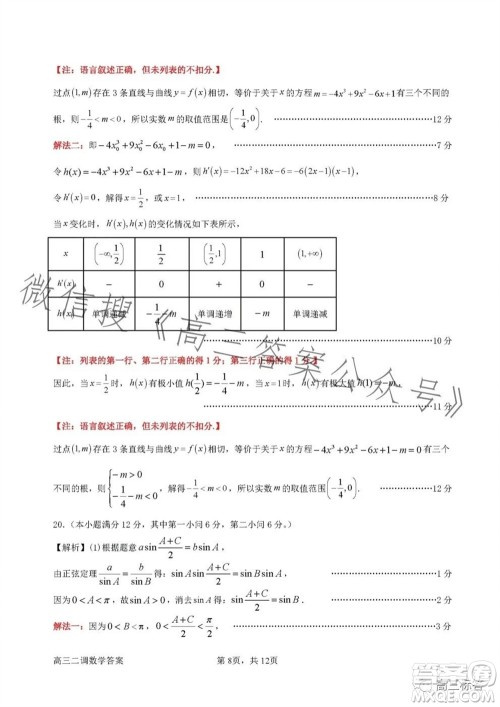 【注：语言叙述正确，但未列表的不扣分.】
过点(1,m)存在 3 条直线与曲线 y=f(x) 相切，等价于关于 x 的方程 m=-4x³+9x²-6x+1 有三个不同的
根，则 -1/4<m<0，所以实数 m 的取值范围是(-1/4,0). ……………………12 分
解法二：即 -4x₀³+9x₀²-6x₀+1-m=0， ……………………7 分
令 h(x)=-4x³+9x²-6x+1-m， 则 h′(x)=-12x²+18x-6=-6(2x-1)(x-1)，
令 h′(x)=0，解得 x=1/2，或 x=1， ……………………8 分
当 x 变化时，h′(x),h(x) 的变化情况如下表所示，
x (-∞,1/2) 1/2 (1/2,1) 1 (1,+∞)
h′(x) − 0 + 0 −
h(x) 单调递减 -1/4-m 单调递增 -m 单调递减
……………………10 分
【注：列表的第一行、第二行正确的得 1 分；第三行正确的得 1 分.】
因此，当 x=1/2 时，h(x)有极小值 h(1/2)=-1/4-m，当 x=1 时，h(x)有极大值 h(1)=-m.
……………………11 分
【注：语言叙述正确，但未列表的不扣分.】
过点(1,m)存在 3 条直线与曲线 y=f(x) 相切，等价于关于 x 的方程 -4x³+9x²-6x+1-m=0 有三个
不同的根，则{-m>0 -1/4-m<0，解得 -1/4<m<0，所以实数 m 的取值范围是(-1/4,0). ……………………12 分
20．（本小题满分 12 分，其中第一小问 6 分，第二小问 6 分。）
【解析】(1)根据题意 a sin (A+C)/2 = b sin A，
由正弦定理 a/sin A = b/sin B 得：sin A sin (A+C)/2 = sin B sin A， ……………………1 分
因为 0<A<π，故 sin A>0，消去 sin A 得：sin (A+C)/2 = sin B. ……………………2 分
解法一：因为 0<B<π，0<(A+C)/2<π， ……………………3 分
高三二调数学答案
第 8页，共 12页
微信搜《高三答案公众号》
高三标答